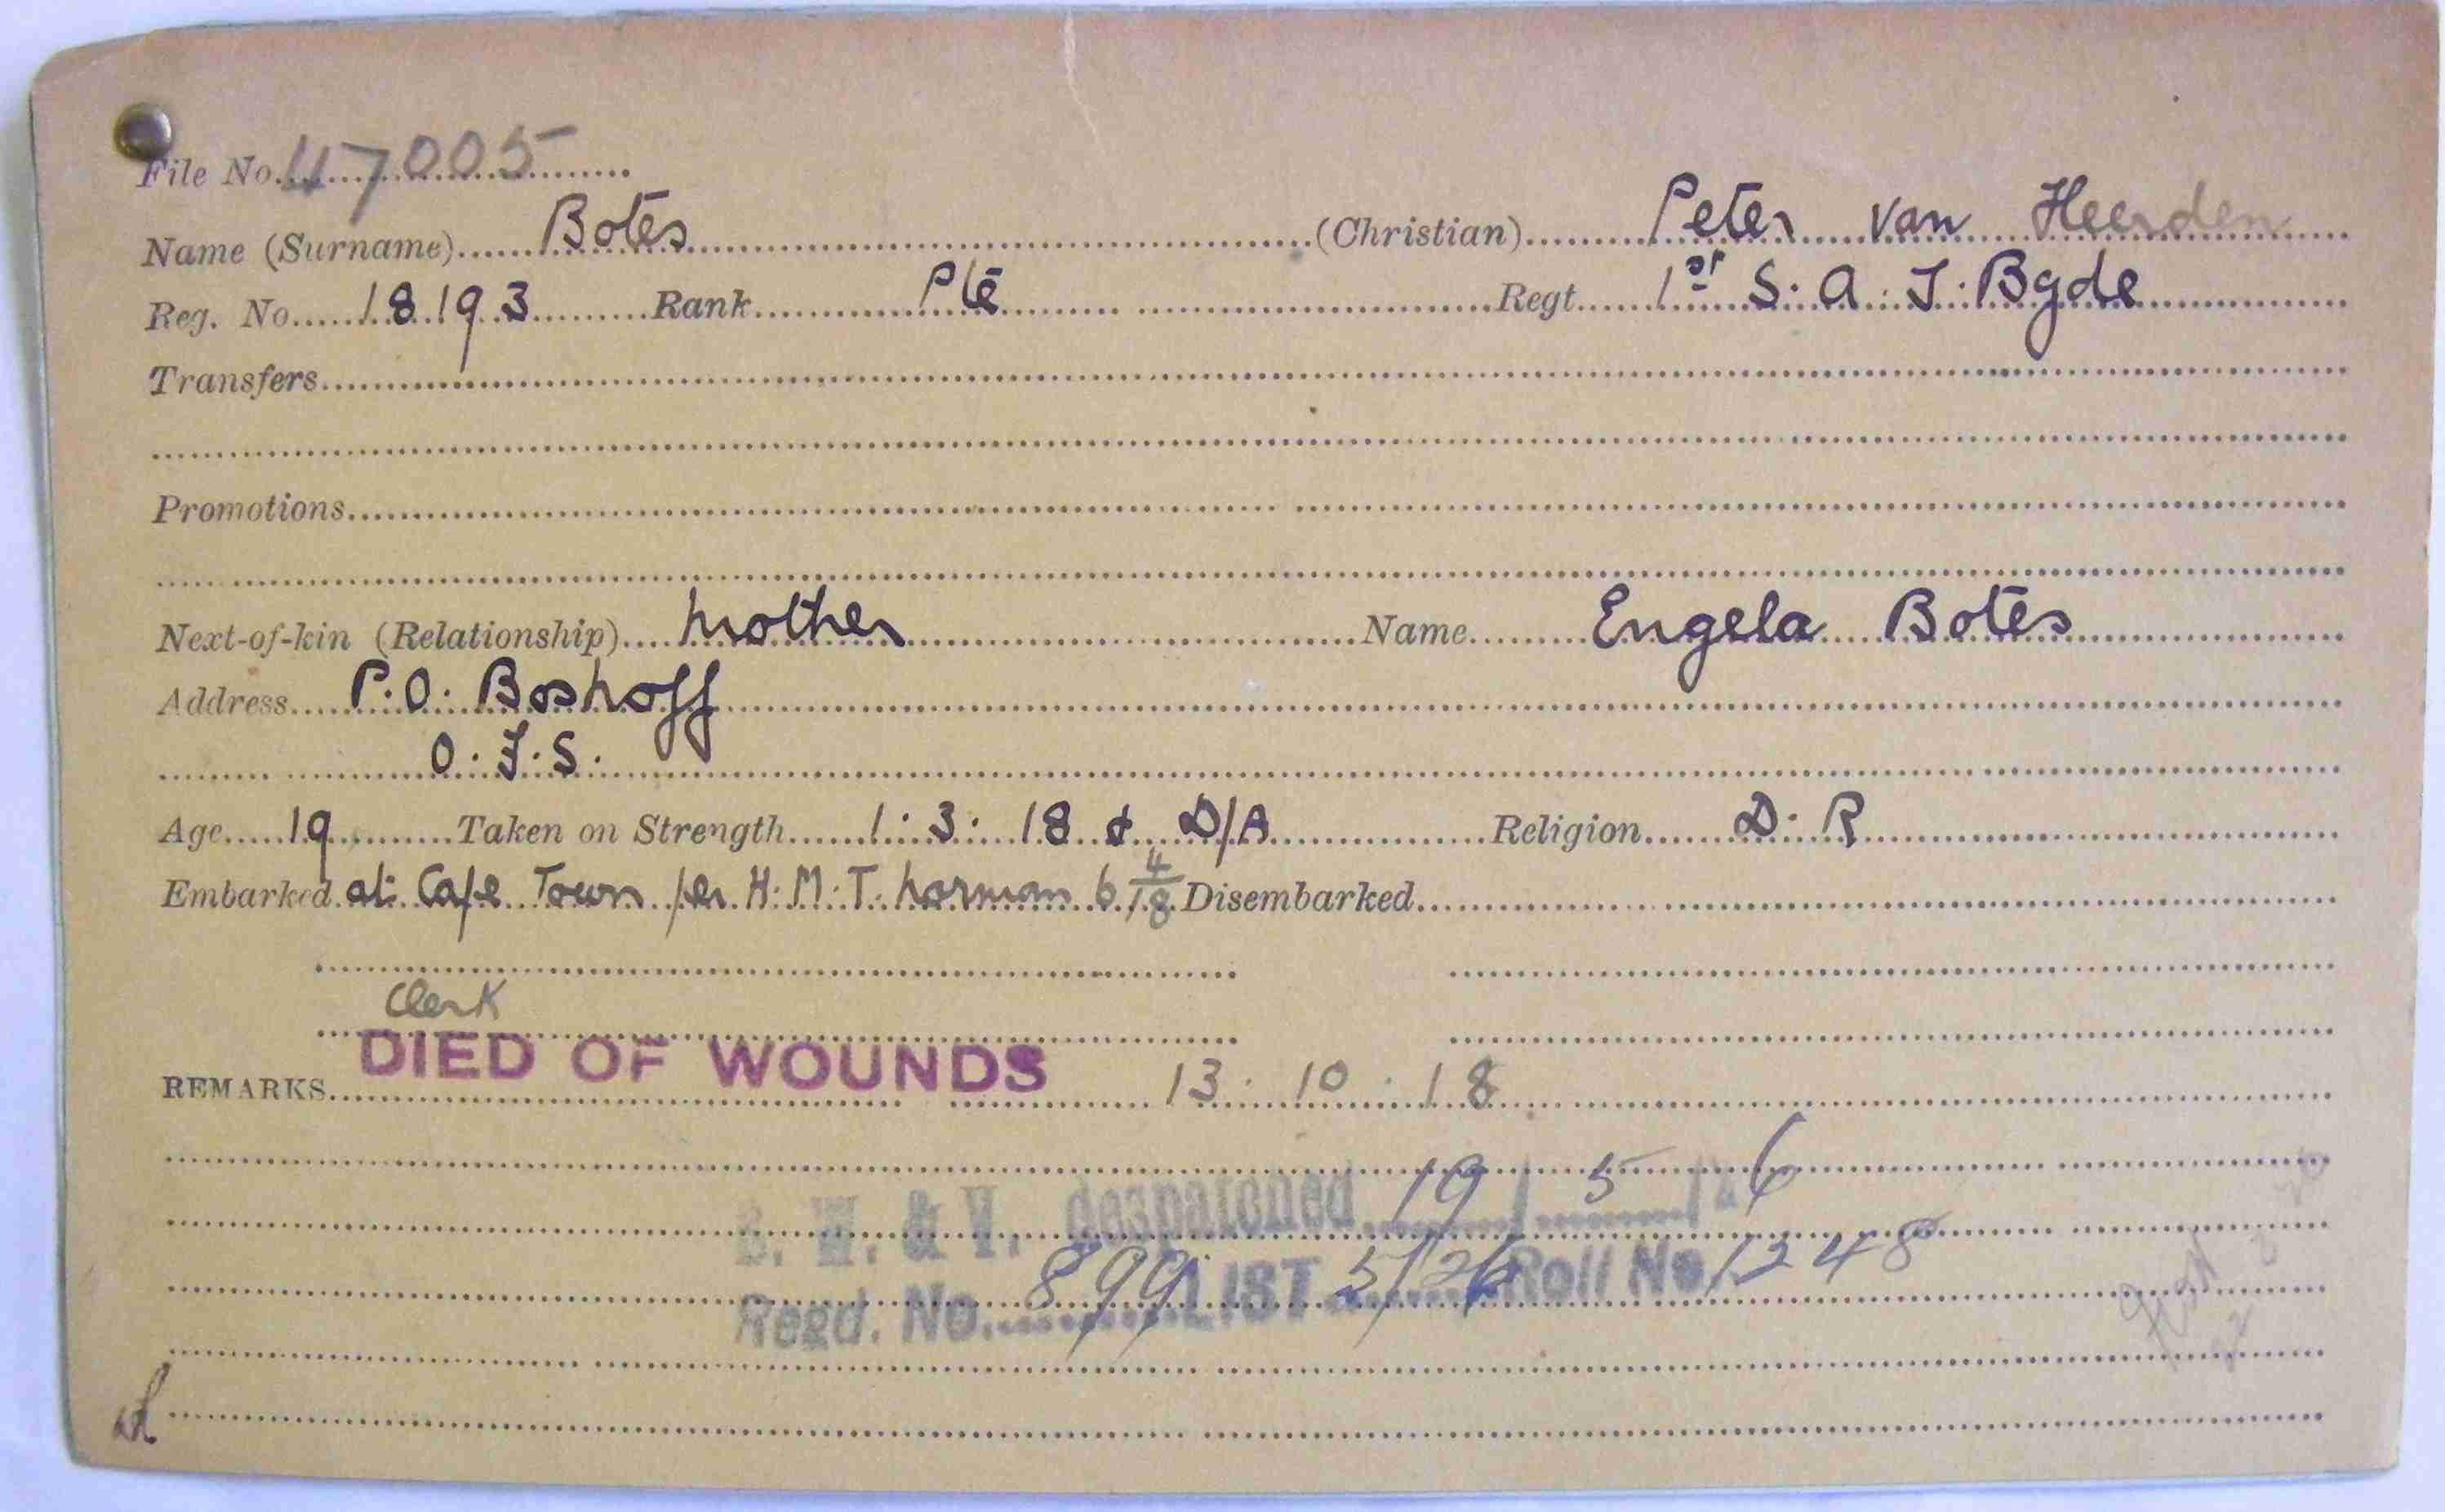 File No. 47005
Name (Surname) Botes (Christian) Peter van Heerden
Reg. No. 18193 Rank Pte Regt. 1st S. A. I. Bgde
Transfers
Promotions
Next-of-kin (Relationship) Mother Name Engela Botes
Address P.O. Boshoff
O. F. S.
Age 19 Taken on Strength 1. 3. 18 & D/A Religion D. R
Embarked at Cape Town per H. M. T. Norman 6/4/18 Disembarked
Clerk
DIED OF WOUNDS
REMARKS 13. 10. 18
B. W. & V. despatched 19/5/26
Regd. No. 899 LIST 5/26 Roll No. 1248